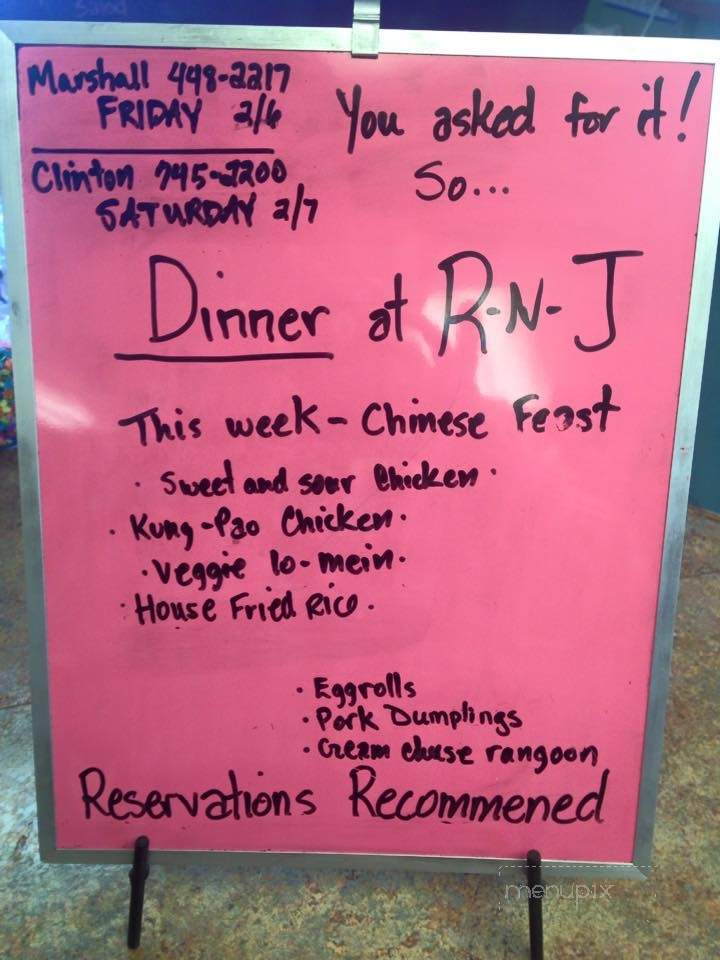 Marshall 448-2217
FRIDAY 2/6
Clinton 745-2200
SATURDAY 2/7
You asked for it!
So...
Dinner at R-N-J
This week - Chinese Feast
· Sweet and sour Chicken ·
· Kung-Pao Chicken ·
· Veggie lo-mein ·
· House Fried Rice ·
· Eggrolls
· Pork Dumplings
· Cream chese rangoon
Reservations Recommened
menupix